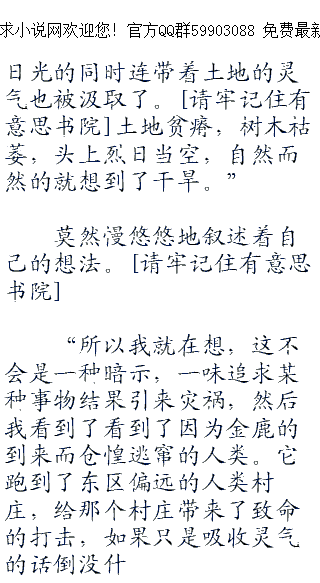 求小说网欢迎您！官方QQ群59903088 免费最新
日光的同时连带着土地的灵
气也被汲取了。[请牢记住有
意思书院]土地贫瘠，树木枯
萎，头上烈日当空，自然而
然的就想到了干旱。”
莫然慢悠悠地叙述着自
己的想法。[请牢记住有意思
书院]
“所以我就在想，这不
会是一种暗示，一味追求某
种事物结果引来灾祸，然后
我看到了看到了因为金鹿的
到来而仓惶逃窜的人类。它
跑到了东区偏远的人类村
庄，给那个村庄带来了致命
的打击，如果只是吸收灵气
的话倒没什